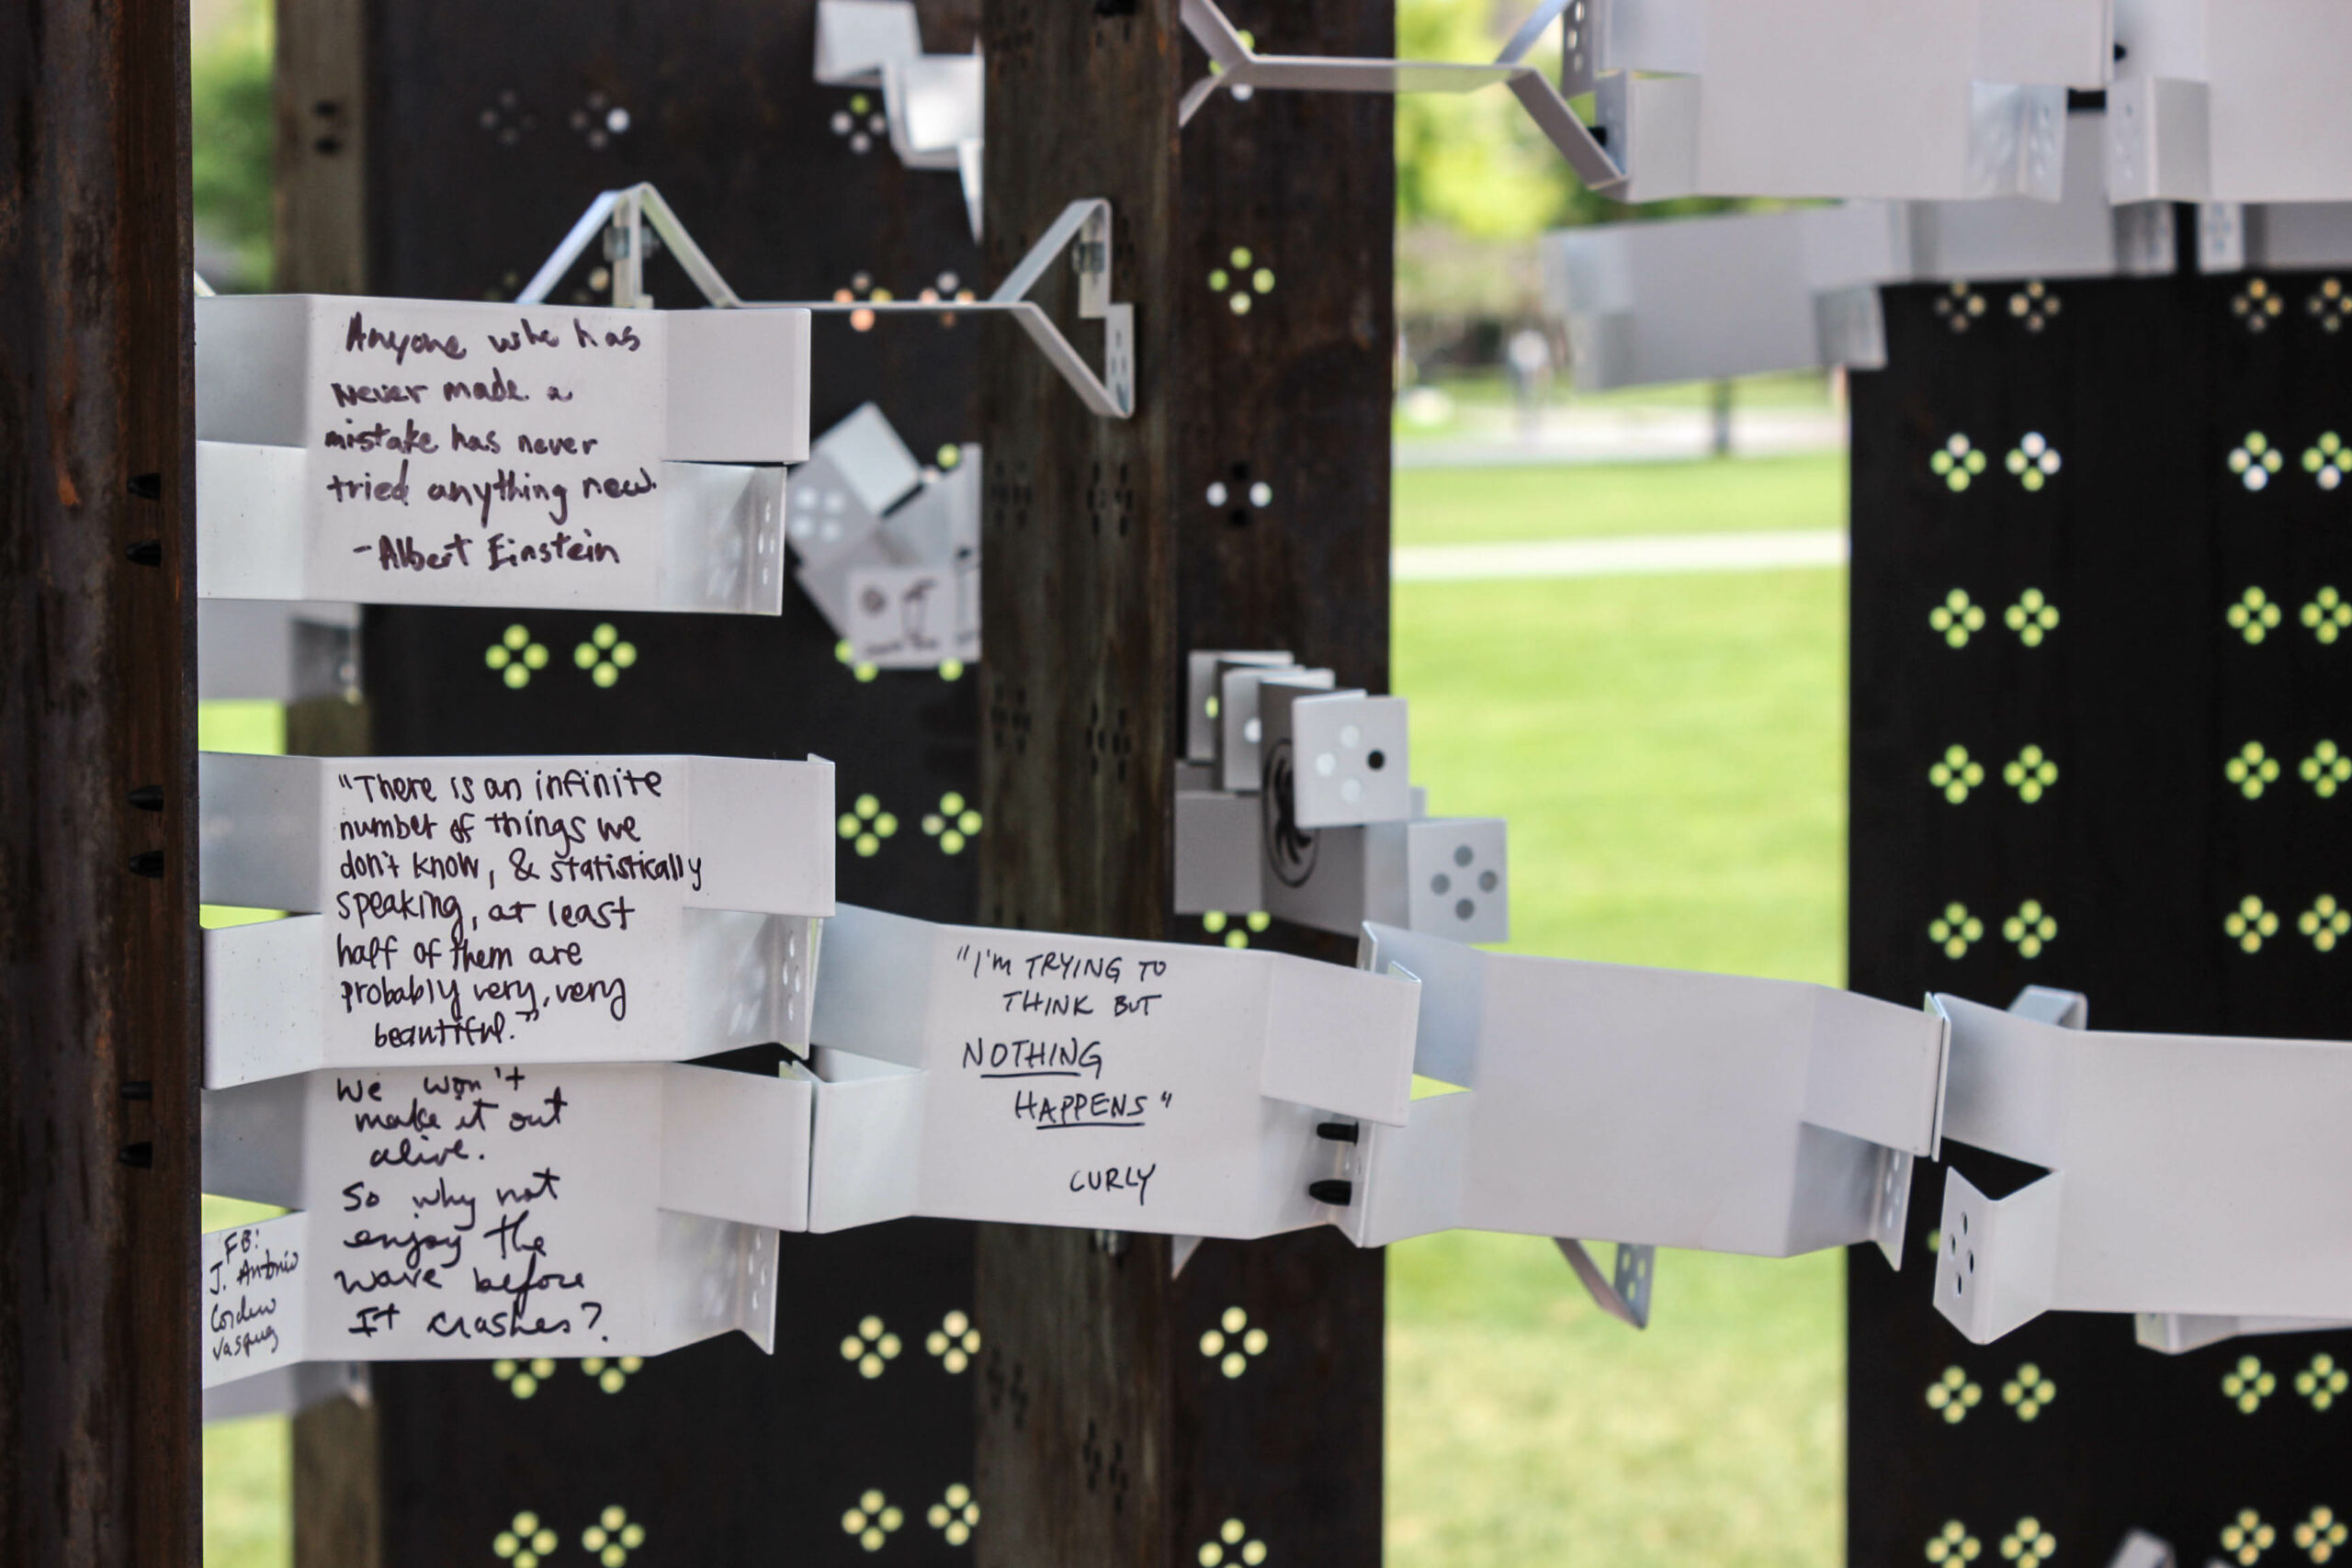 Anyone who has
never made a
mistake has never
tried anything new.
- Albert Einstein
"There is an infinite
number of things we
don't know, & statistically
speaking, at least
half of them are
probably very, very
beautiful."
We won't
make it out
alive.
So why not
enjoy the
wave before
It crashes?
FB:
J. Antonio
"I'm TRYING TO
THINK BUT
NOTHING
HAPPENS"
CURLY